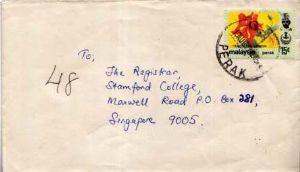 To,
The Registrar,
Stamford College,
Maxwell Road P.O. Box 281,
Singapore 9005.
48
malaysia
perak
15¢
PERAK